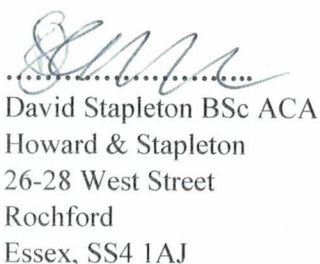 David Stapleton BSc ACA
Howard & Stapleton
26-28 West Street
Rochford
Essex, SS4 1AJ